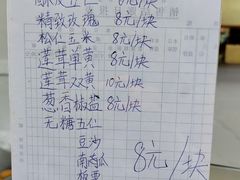 酥皮五仁 8元/块
精致玫瑰 8元/块
松仁玉米 8元/块
莲茸单黄 8元/块
莲茸双黄 10元/块
葱香椒盐 8元/块
无糖五仁
豆沙
南瓜 8元/块
板栗